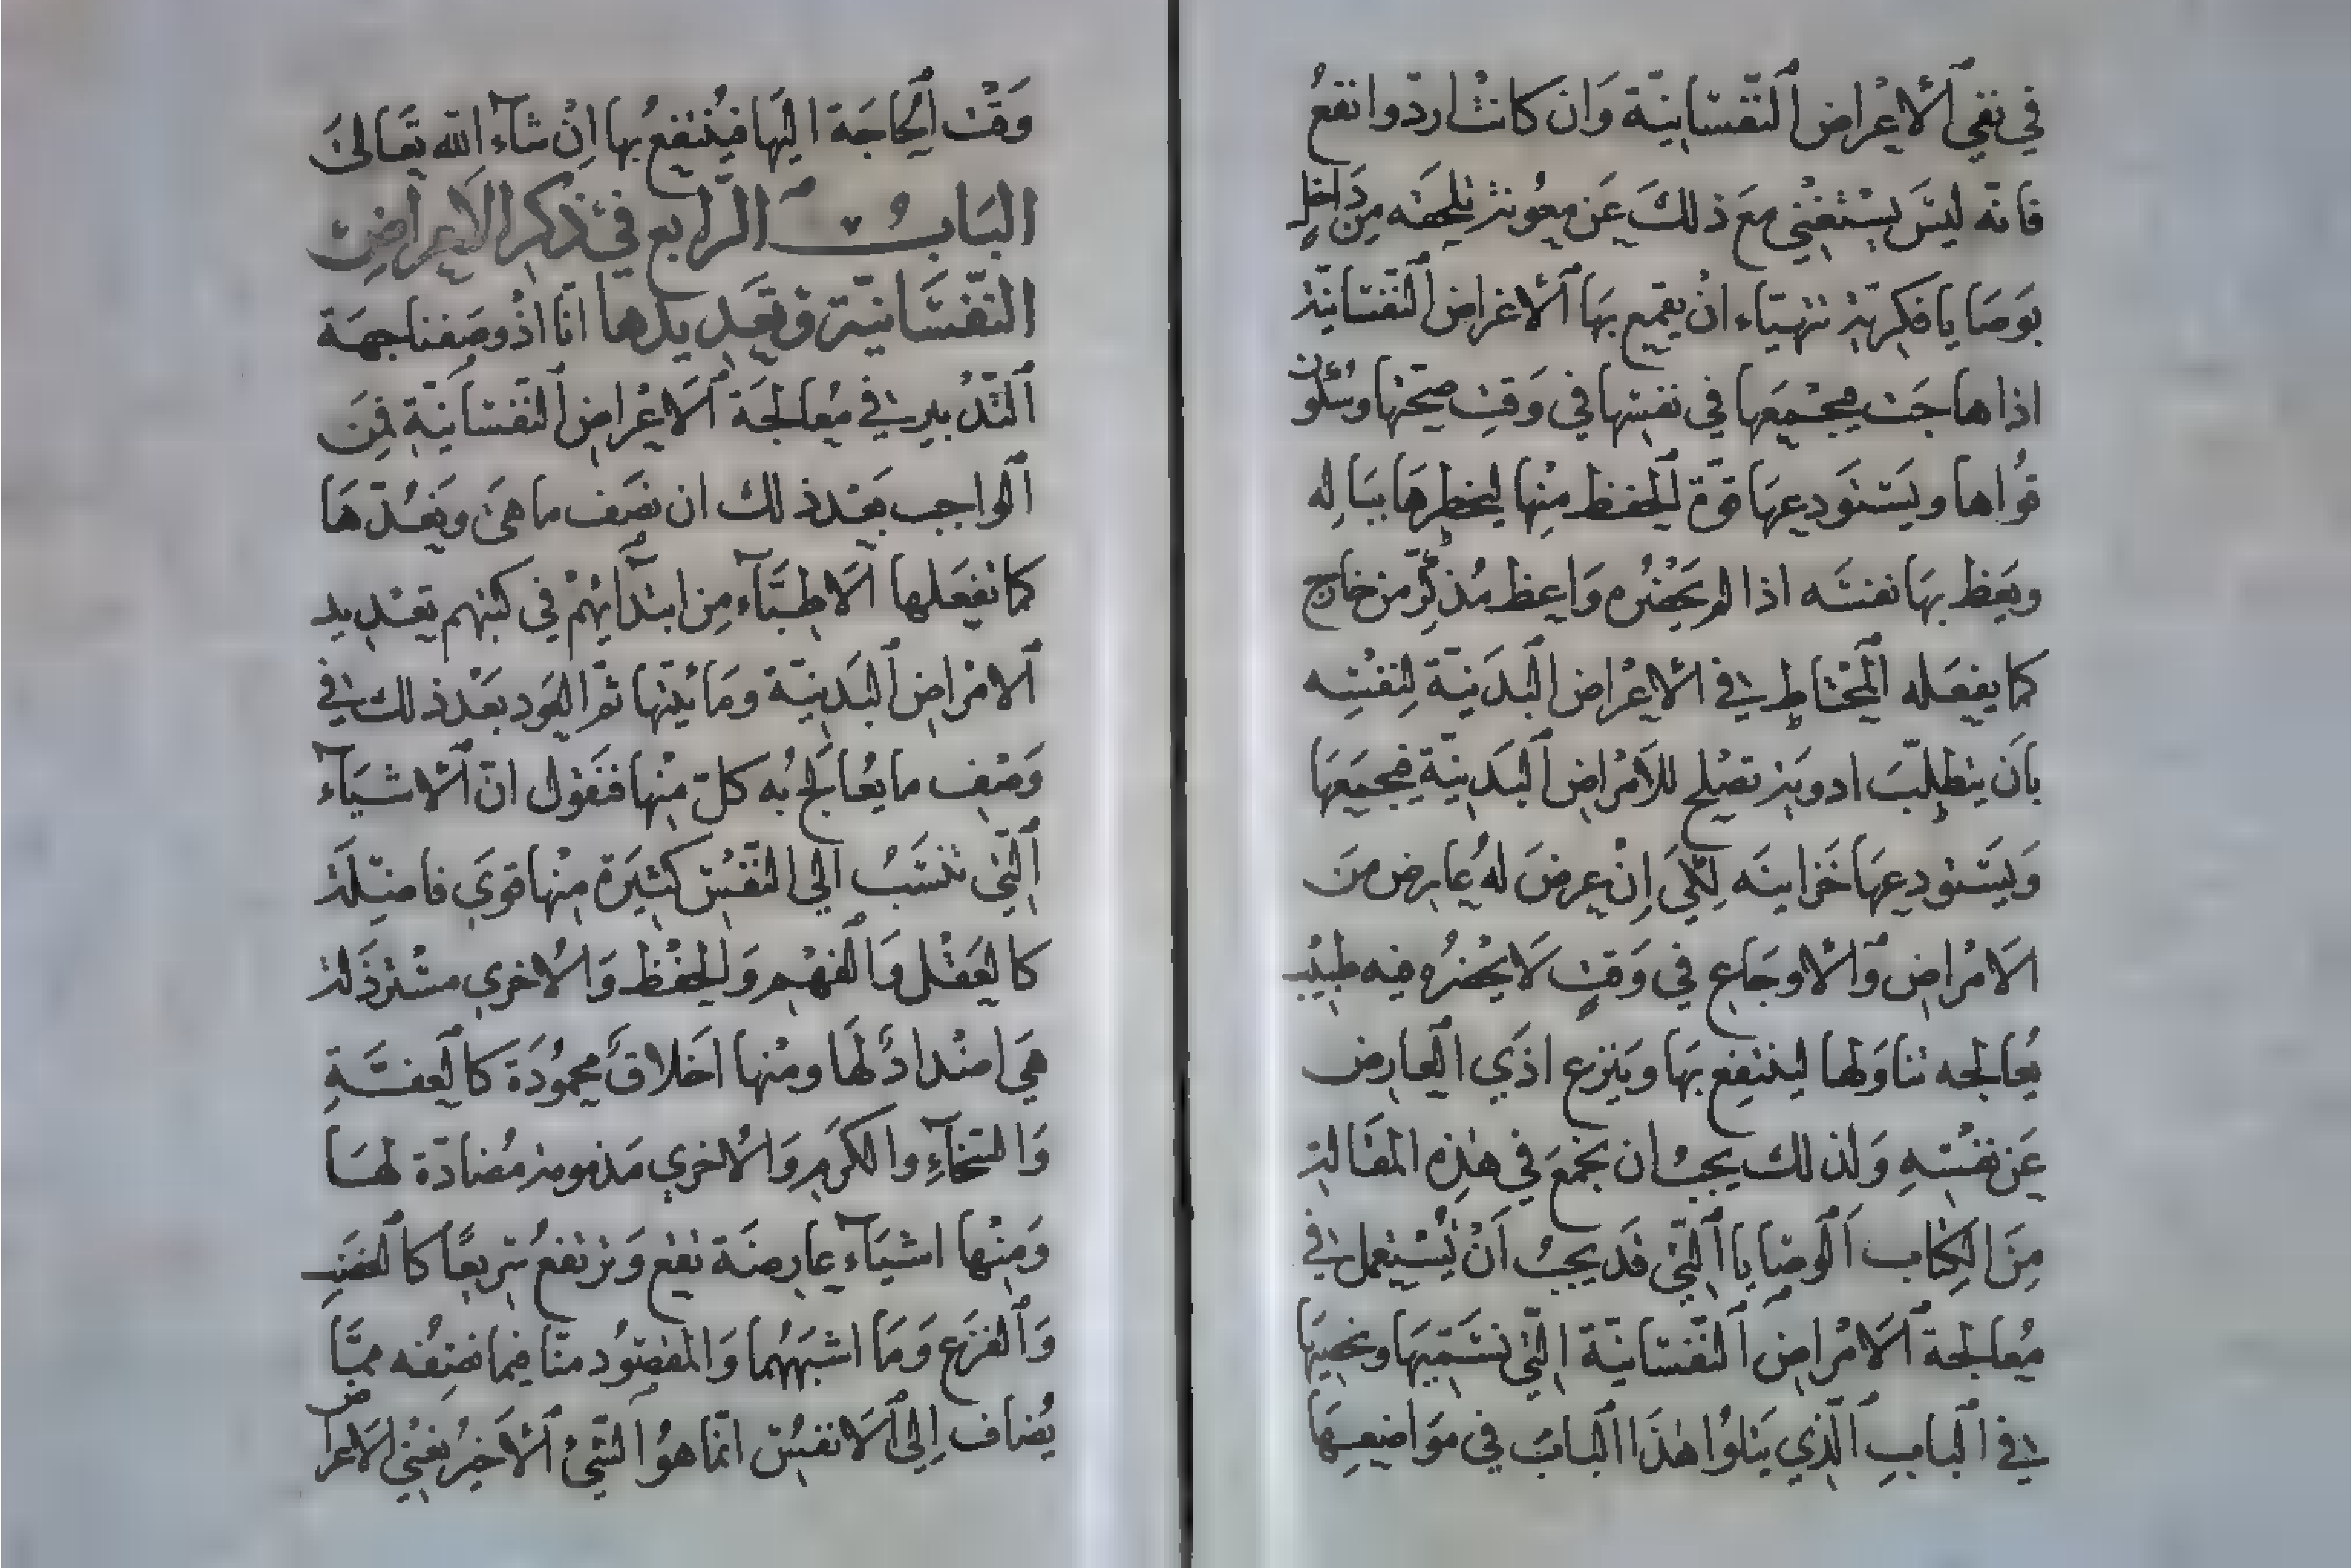 في نفي ٱلأعراض ٱلنّفسانيّة وَان كانت اردّ وانفعُ
فانّه ليسَ يستغني معَ ذلكَ عَن معونة تلحقه مِن دَاخلٍ
بوَصَايا فكريّة تتهيّاء انْ يقمع بهَا ٱلأعراض ٱلنّفسانيّة
اذا هاجَت فيجْمعَها في نفسها في وَقتِ صحّتها وسُكُون
قُواها ويَستَودعهَا قوّة ٱلحفظ منْها ليخطرهَا ببَاله
ويَعظ بهَا نفسَه اذا لم يَحْضُره وَاعظ مُذكّرٌ من خارج
كما يفعَله ٱلمحْتاط في ٱلأعْراض ٱلبَدَنيّة لِنفْسِه
بانَ يتطلّبَ ادوية تصْلح للأمْراض ٱلبَدنيّة فيجمَعَهَا
وَيَسْتَودعهَا خَزاينَه لِكَي اِنْ عرضَ لهُ عارض منَ
الأمْراض وَٱلأوجَاع في وَقتٍ لَا يحْضرُه فيه طبيْب
يُعالجه تناوَلها لينتفع بهَا وَينزع اذَي ٱلعارض
عَن نفْسِهِ وَلذلك يجبُ ان نجْمعَ في هٰذِه المقالة
مِنَ الكِتاب ٱلوصَايا ٱلتّي قَد يجبُ اَنْ تُسْتعمل في
مُعالجة ٱلأمْراض ٱلنّفسانيّة التّي نسَمّيهَا ونحصيهَا
في ٱلبابِ ٱلّذي يَتلوُا هٰذَا ٱلبابَ في موَاضعِهَا
وَقْت ٱلحاجَة اليْهَا فيُنتفعُ بها اِنْ شآءَ الله تَعَالىَ
البَابُ الرَّابع في ذكر الأعراض
النّفسَانيّة وَتعَديدها انّا اذْ وصَفنا جهَة
ٱلتّدْبير في مُعالجَة ٱلأعْراض ٱلنَّفسانيّة فمِنَ
ٱلواجب بَعْد ذلك ان نصَف ما هيَ ويَعُدّهَا
كما نفعَلها ٱلأطبّآء مِن ابتدَآئهمْ في كتبهم تعْديد
ٱلأمْراض ٱلبَدنيّة ومَا يُنها ثمّ العَود بعَد ذلك في
وَصْف ما يعُالَج بُه كلّ منْها فنَقوْل انّ ٱلأشيَآء
ٱلتّي تنسَبُ الي النّفْس كثيَرة منْها قويَ فاضلَة
كالعَقْل وَالفهْم وَٱلحفْظ وَالأخري مسْترذَلة
هيَ اضْدادٌ لَهَا ومنْها اَخلاقٌ محمُودَة كالعفّةِ
وَالسّخآءِ والكرَم وَالأخري مَذمومة مُضادّة لهَا
وَمِنْها اشيَآء عارضَة تقع وَترتفعُ سَريعًا كالغضَب
وَٱلفزَع وَمَا اشبَهَهُما وَالمقصُود منّا فيما نصِفُه ممّا
يُضاف اِلي ٱلأنفسُ انّما هوُ الشّئُ ٱلأخيَرُ يعْني الأعراض